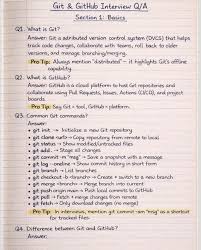 Git & GitHub Interview Q/A
Section 1: Basics
Q1. What is Git?
Answer: Git is a distributed version control system (DVCS) that helps
track code changes, collaborate with teams, roll back to older
versions, and manage branching/merging.
Pro Tip: Always mention "distributed" — it highlights Git's offline
capability.
Q2. What is GitHub?
Answer: GitHub is a cloud platform to host Git repositories and
collaborate using Pull Requests, Issues, Actions (CI/CD), and project
boards.
Pro Tip: Say Git = tool, GitHub = platform.
Q3. Common Git commands?
Answer:
• git init → Initialize a new Git repository
• git clone <url> → Copy repository from remote to local
• git status → Show modified/untracked files
• git add . → Stage changes
• git commit -m "msg" → Save a snapshot with a message
• git log --oneline → Show commit history in short form
• git branch → List branches
• git checkout -b <branch> → Create + switch to a new branch
• git merge <branch> → Merge branch into current
• git push origin main → Push local commits to GitHub
• git pull → Fetch + merge changes from remote
• git fetch → Only download changes (no merge)
Pro Tip: In interviews, mention git commit -am "msg" as a shortcut
for tracked files
Q4. Difference between Git and GitHub?